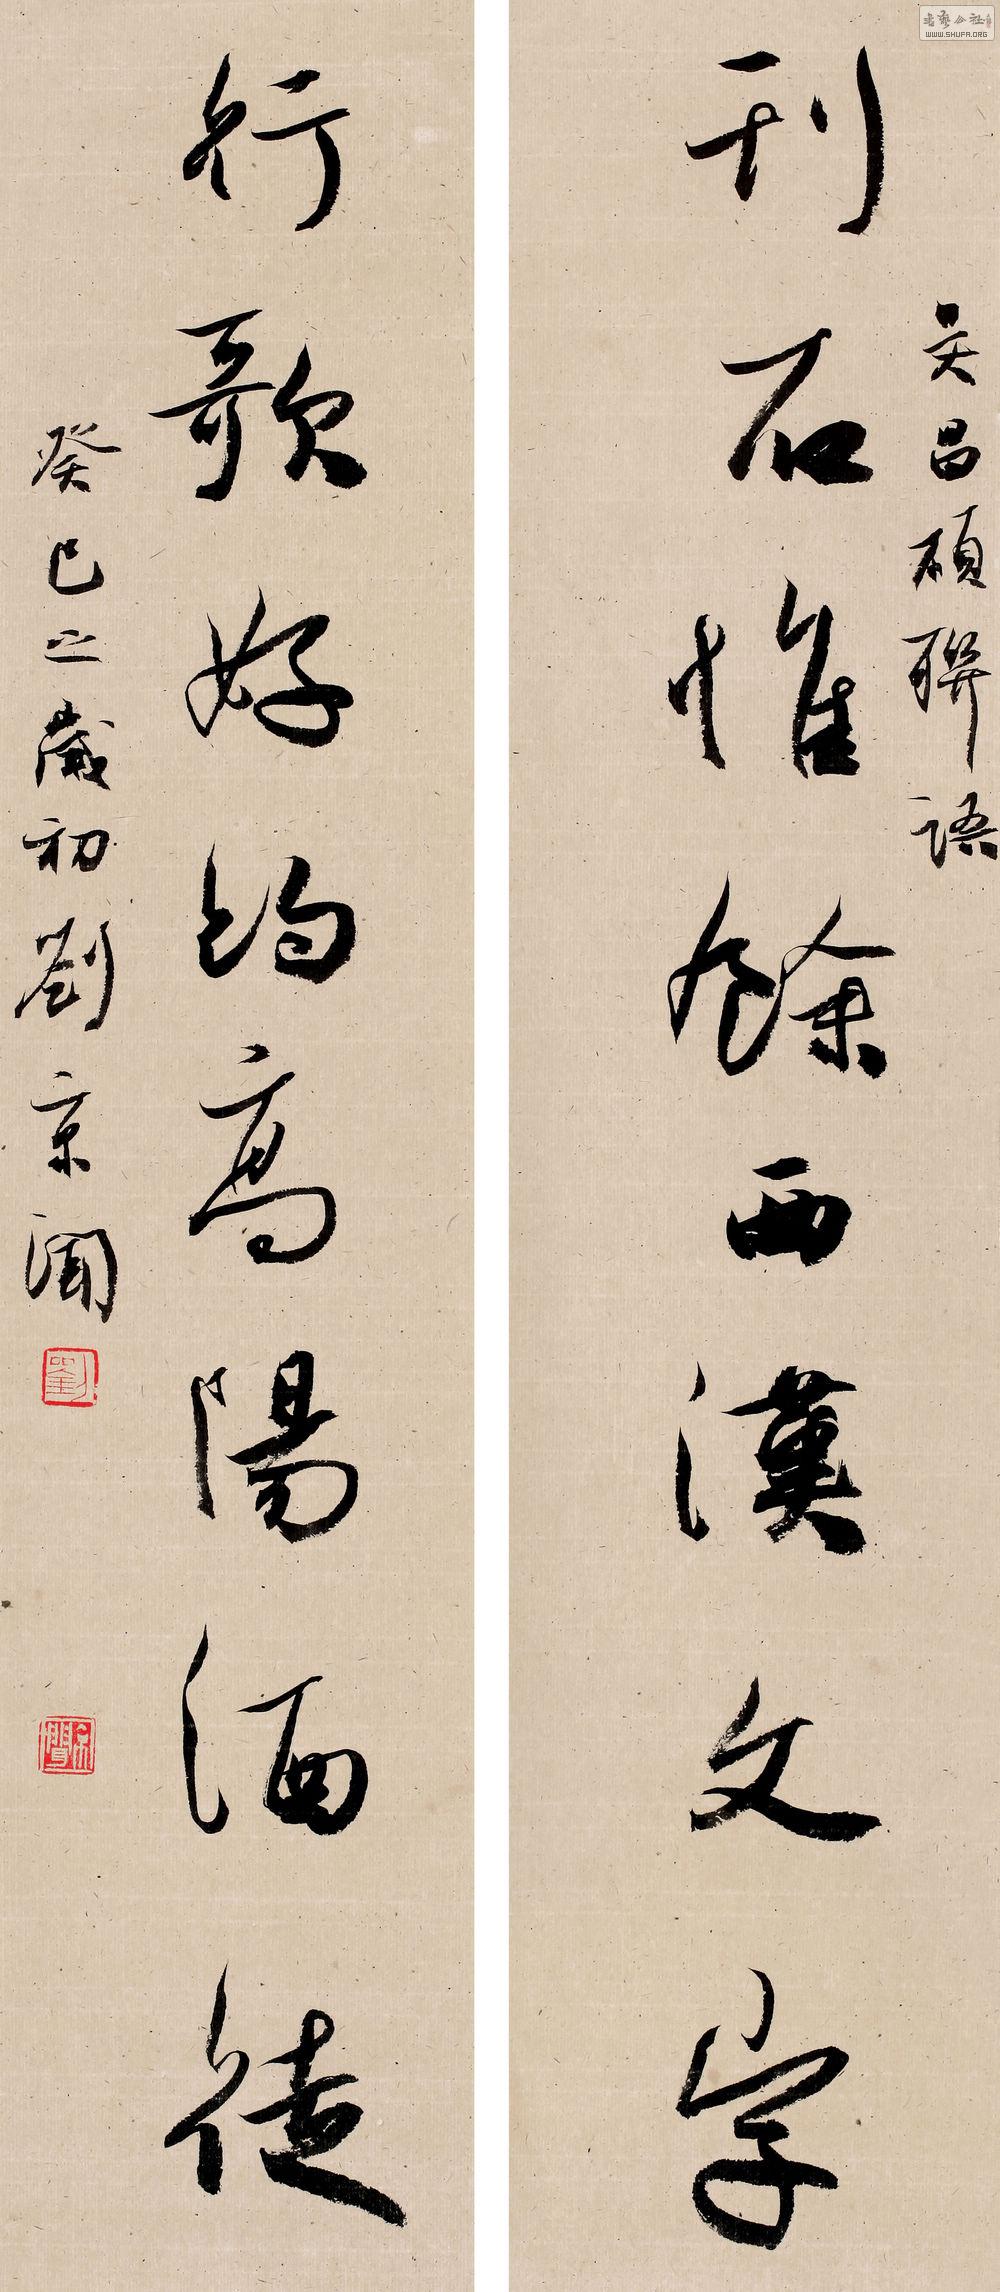 吴昌碩聯語
刊石惟餘西漢文字
行歌好約高陽酒徒
癸巳之歲初劉京聞
劉
書藝公社
WWW.SHUFA.ORG